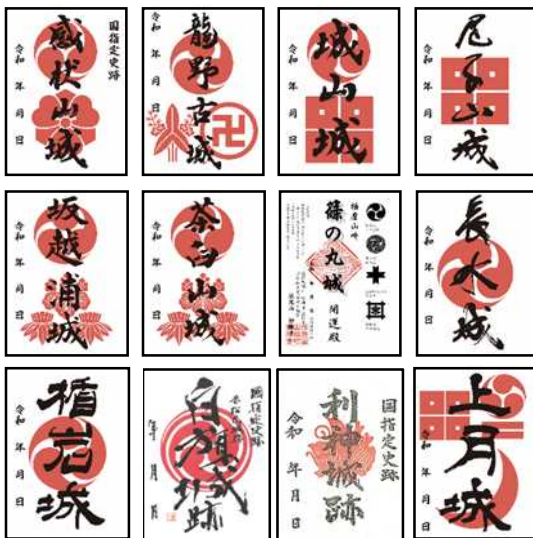 国指定史跡
感状山城
令和 年 月 日
龍野古城
令和 年 月 日
城山城
令和 年 月 日
尼子山城
令和 年 月 日
坂越浦城
令和 年 月 日
茶臼山城
令和 年 月 日
播磨山崎
篠の丸城
開運殿
長水城
令和 年 月 日
楯岩城
令和 年 月 日
国指定史跡
赤松氏城跡
白旗城跡
年 月 日
国指定史跡
利神城跡
令和 年 月 日
上月城
令和 年 月 日